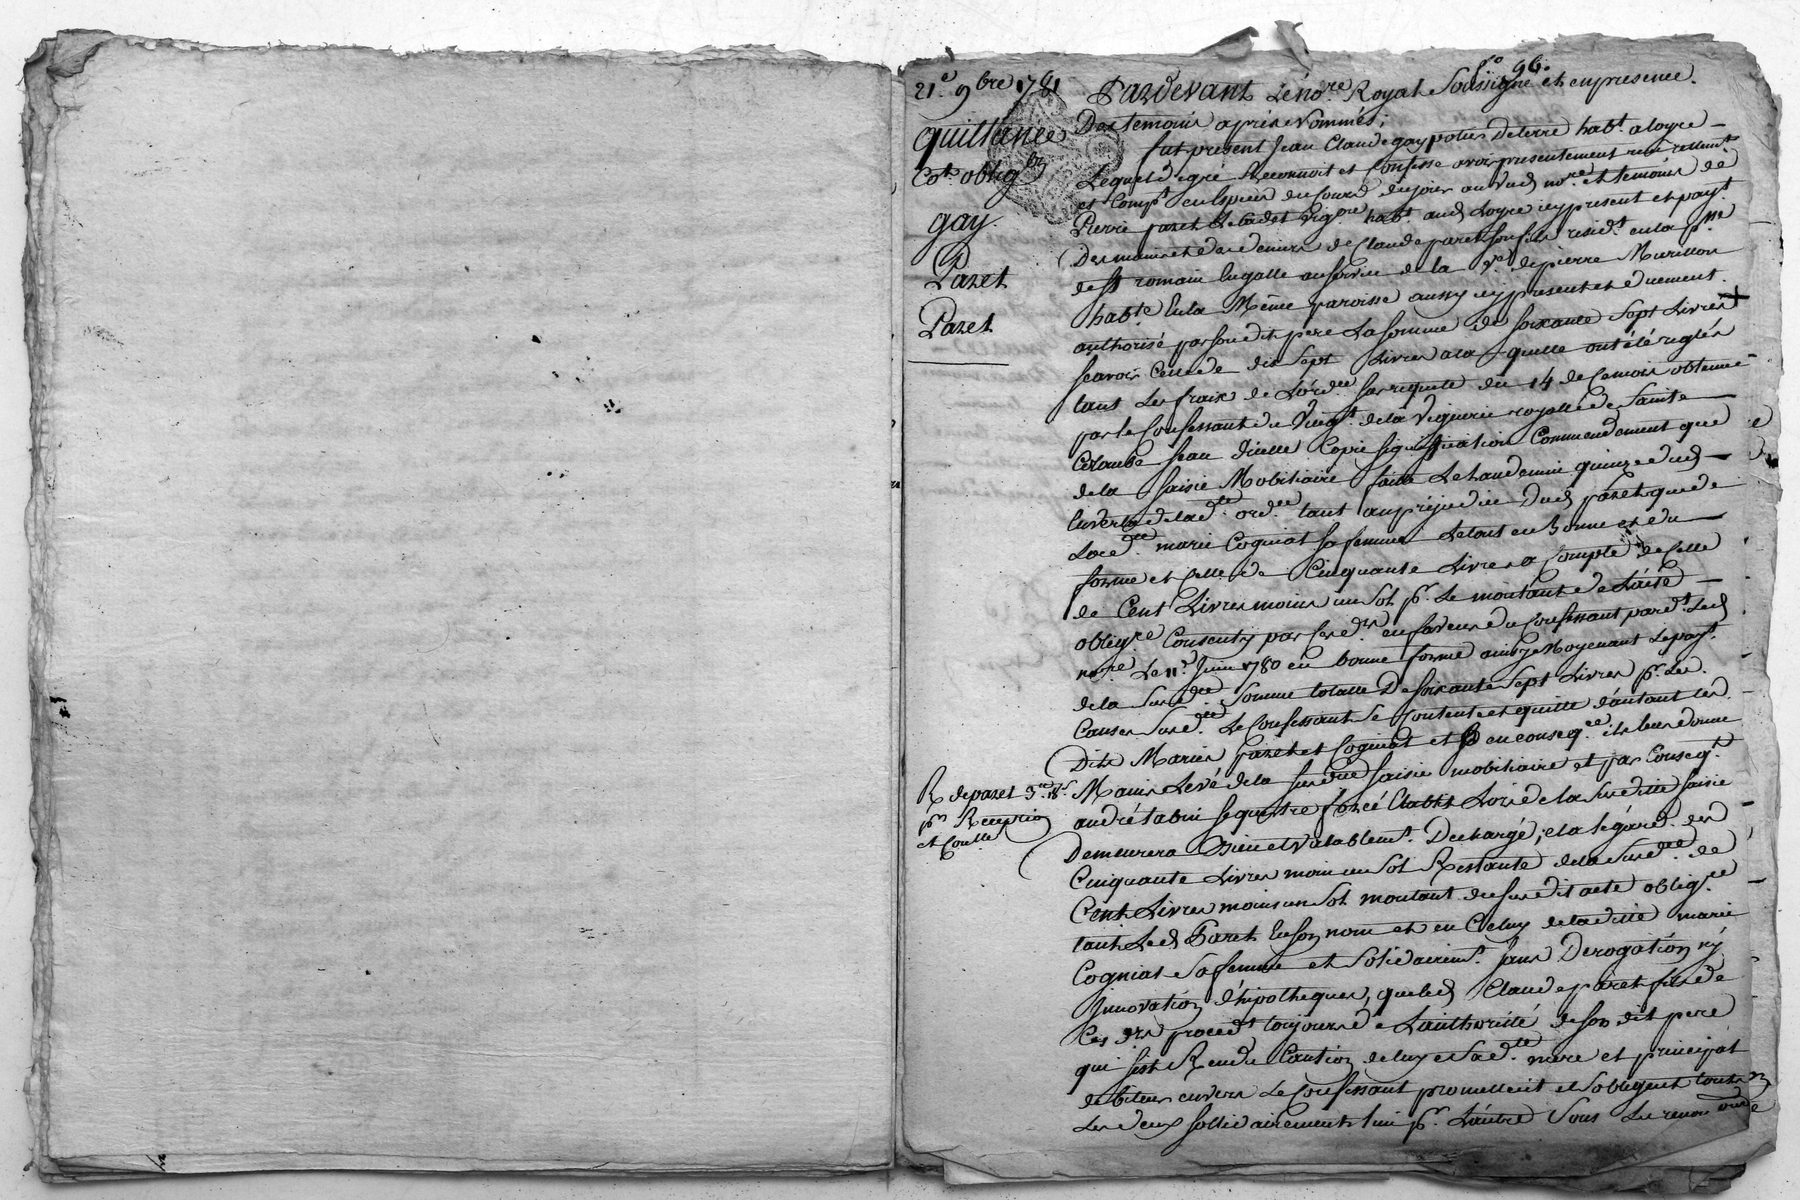 fo 96.
21e 9bre 1781
quittance
Cot. obligon
gay.
Pazet
Pazet
Pardevant Le nore Royal Soussigné et en presence
Des temoins apres Nommés;
fut present Jean Claude gay potier de terre habt. a loyre
Lequel de gré Reconnoit et Confesse avoir presentement reçu reellemt
et Compt. en Especes du Cours de ce jour au vu dud nore et temoins de
Pierre pazet Le Cadet Vigon habt. aud Loyre icy present et payt
Des mains et des deniers de Claude pazet son fils residt. en la psse
de st romain En galle au service de la ve. de pierre Murillon
habte En la Même paroisse aussy icy present et duement
authorisé par sondit pere La somme de soixante Sept Livres
scavoir Celle de dix Sept Livres a la quelle ont été reglés
tant Les fraix de L'ordce sur requete du 14 de Ce mois obtenue
par le Confessant de Viengt. de la Viguerie royalle de Sainte
Colombe Sceau d'icelle Copie signiffication Commendement que
de la saisie Mobiliaire faite Le Landemain quinze dud
En vertu de lad. ordce. tant au préjudice Dud pazet que de
Lade. marie Cogniat sa femme Le tout en Bonne et due
forme et Celle de Cinquante Livres a Compte de Celle
de Cent Livres moins un Sol pr. Le montant de L'acte
obligre Consenty par Ces drs. en faveur du Confessant pardt. Led
nore. Le 11e. Juin 1780 en bonne forme ainsy Moyenant Le payt.
de la Susdte. Somme totalle De soixante Sept Livres pr. Les
Causes Susdtes. Le Confessant Se Contente et quitte d'autant les
Dits Maries pazet et Cogniat et en conseqce. il leur donne
Main Levé de la Susdite saisie mobiliaire et par Conseqt.
andré tabin sequestre forcé Etably Lors de la Susditte saisie
Demeurera Bien et Valablemt. Dechargé; et a l'égard des
Cinquante Livres moins un Sol Restante de la Susdte. de
Cent Livres moins un Sol montant du susdit acte obligre.
tant Led Pazet En son nom et en Celuy de la ditte marie
Cogniat Sa femme et Solidairemt. Sans Derogation ny
Innovation d'hipotheques, que led Claude pazet fils de
Ces drs procedt. toujours de L'authorité de son dit pere
qui s'est Rendu Caution de luy et Sa dte. mere et principal
debiteur envers Le Confessant promettent et S'obligent touts
Les deux sollidairement L'un pr. L'autre Sous Les renon
R de pazet 3ll 18s
pr Reception
et Conlle